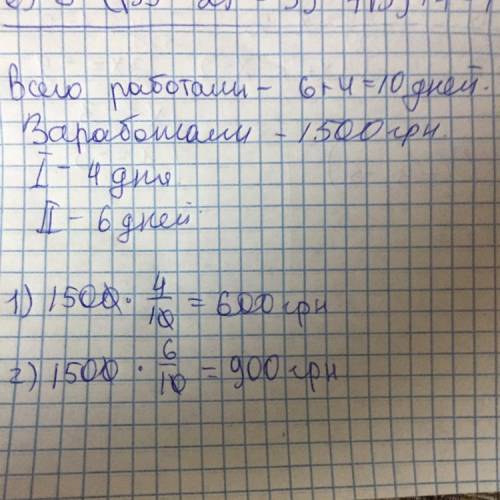 Всего работали - 6+4=10 дней.
Заработали - 1500 грн
I - 4 дня
II - 6 дней
1) 1500 · 4/10 = 600 грн
2) 1500 · 6/10 = 900 грн